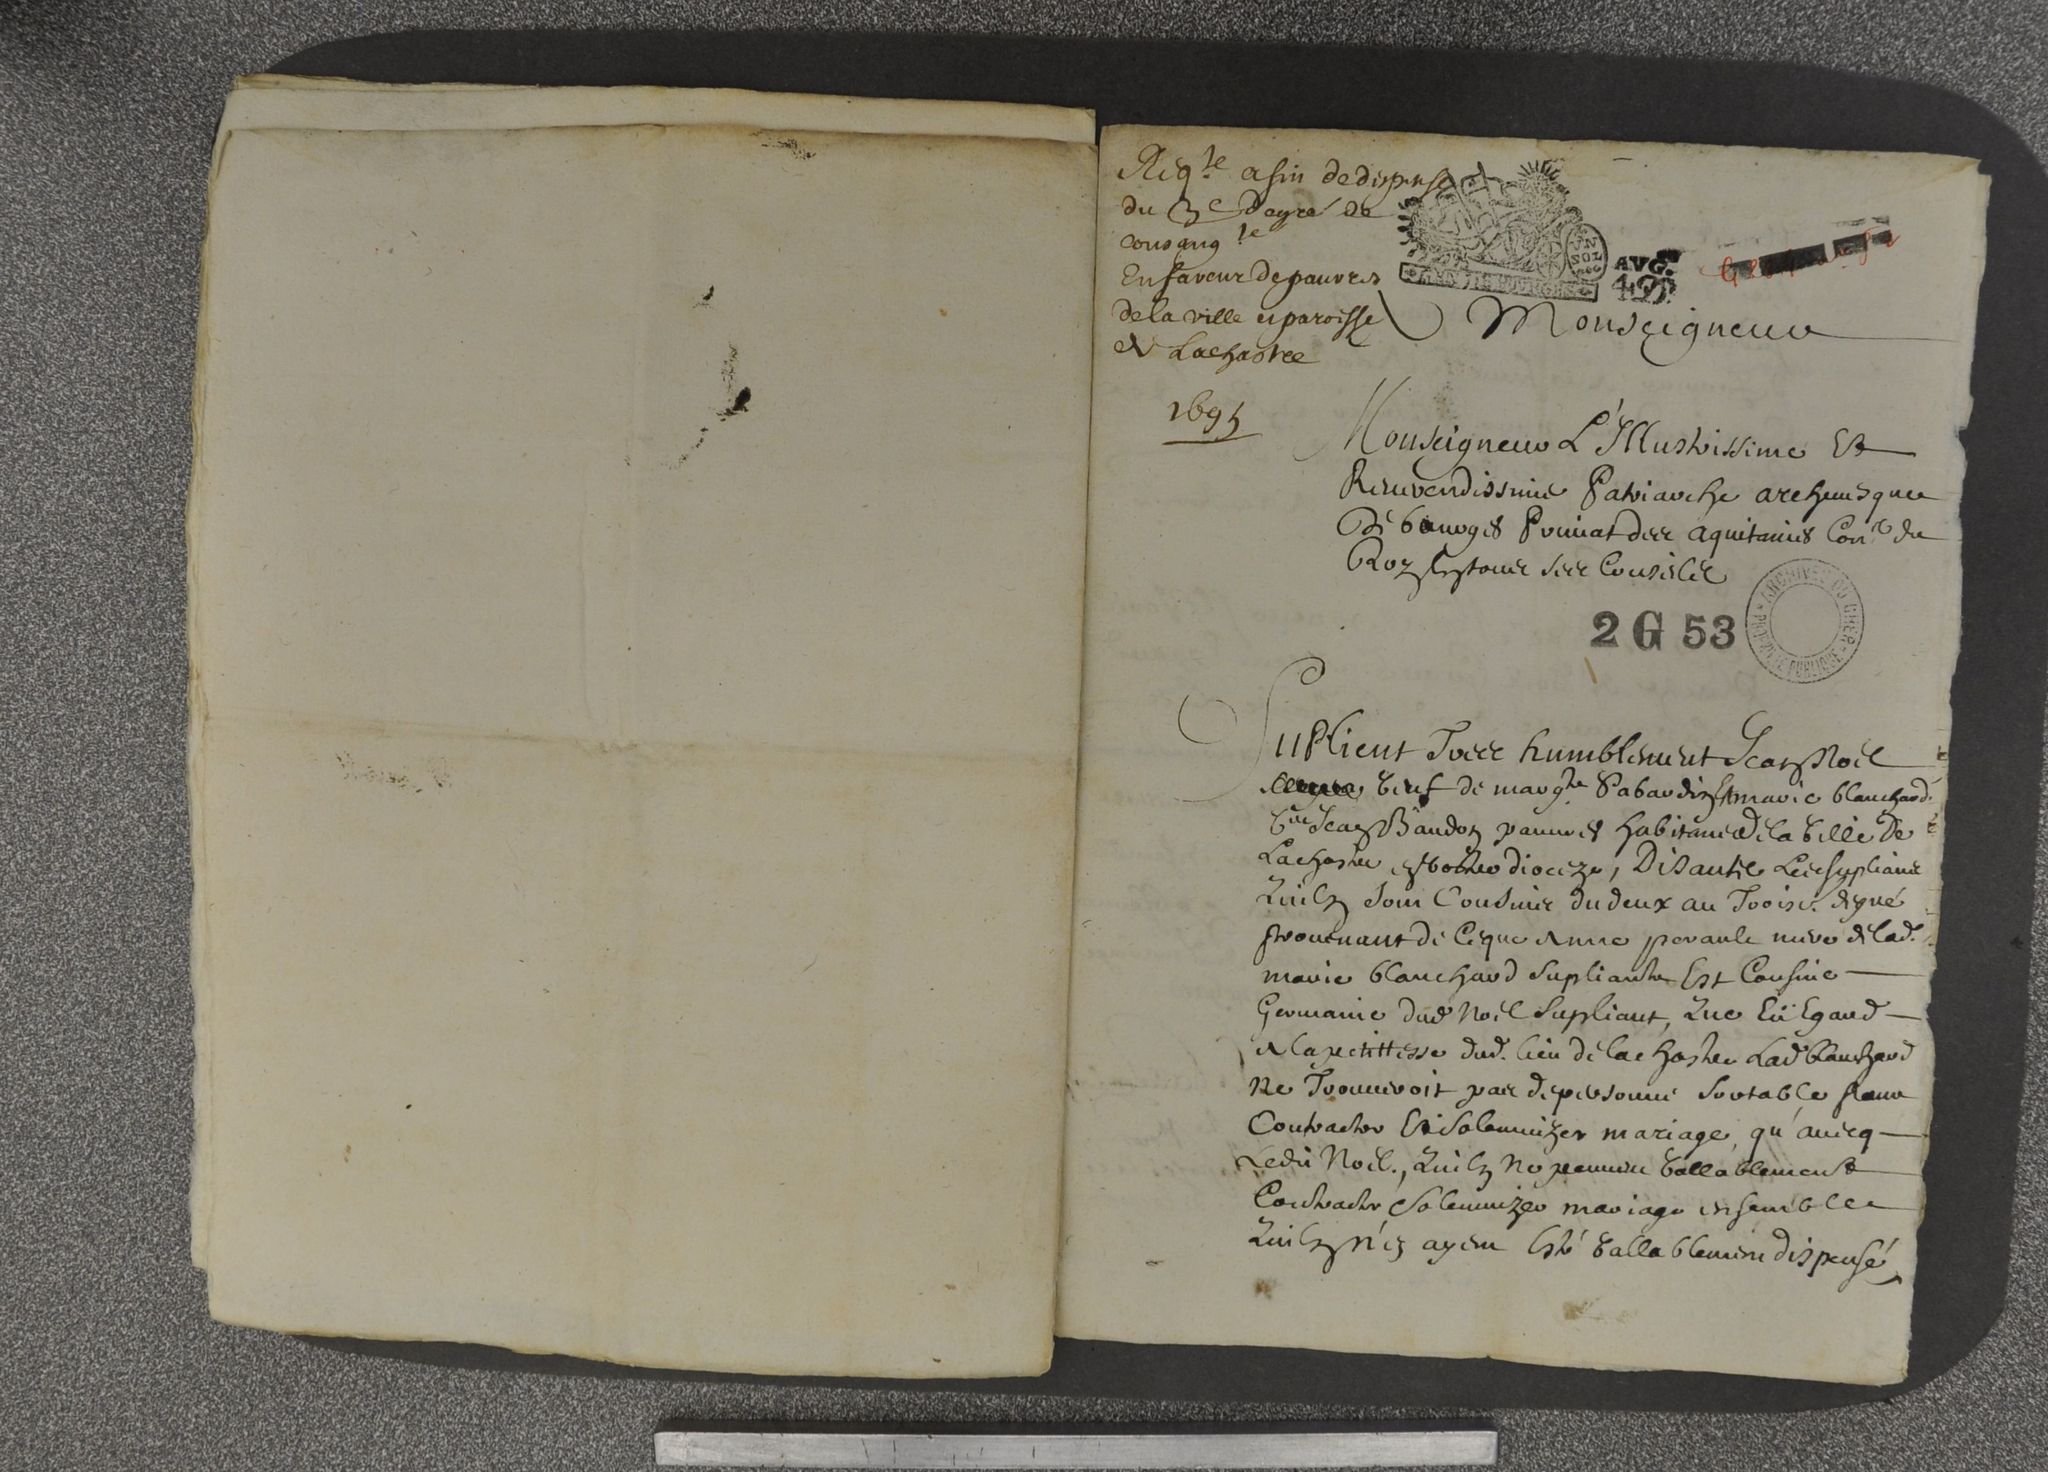 Reqte afin de dispense
du 3e degré de
consangte
En faveur de pauvres
de la ville et paroisse
de Lachastre
1695
GEN DE BOURGES
UN SOL
AVG.
Monseigneur
Monseigneur L'Illustrissime Et
Reverendissime Patriarche archeuesque
De bourges Primat des aquitaines Conr du
Roy En tous ses Conseils
2 G 53
ARCHIVES DU CHER PROPRIÉTÉ PUBLIQUE
Suplient Tres humblement Jean Noël
veuf de margte Pabaudin Et marie blanchard
vue Jean Baudon pauures habitans de la ville De
Lachastre en vostre dioceze, Disant Les suplians
Quilz sont Cousins du deux au Troise. degré
prouenant de Ce que Anne perault mere de lad.
marie blanchard supliante Est Cousine
Germaine dud Noël supliant, Que Eü Egard
A la petittesse dud. lieu de lachastre Lad blanchard
Ne Trouueroit pas de personne sortable pour
Contracter Et solemnizer mariage, qu'auecq
Ledit Noël., Quilz ne peuuent vallablement
Contracter solemnizer mariage ensemble
Quilz n'en ayent Esté vallablement dispensé